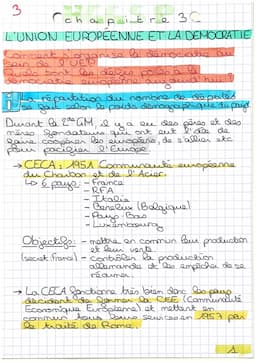 3
chapitre 3C
L'UNION EUROPÉENNE ET LA DÉMOCRATIE
Comment s'exprime la démocratie au
sein de l'UE ?
La répartition du nombre de députés
se fait selon le poids démographique du pays
Durant la 2nde GM, il y a eu des pères et des
mères fondateurs qui ont eut l'idée de
faire coopérer les européens, de s'allier etc
pour pacifier l'Europe.
→ CECA : 1951 Communauté européenne
du Charbon et de l'Acier.
↳ 6 pays : - France
- RFA
- Italie
- Benelux (Belgique)
- Pays-Bas
- Luxembourg
Objectifs : - mettre en commun leur production
et leur vente
(secret France) - contrôler la production
allemande et les empêcher de se
réarmer.
→ La CECA fonctionne très bien donc les pays
décident de former la CEE (Communauté
Économique Européenne) et mettent en
commun tous leurs services en 1957 par
le traité de Rome.
1